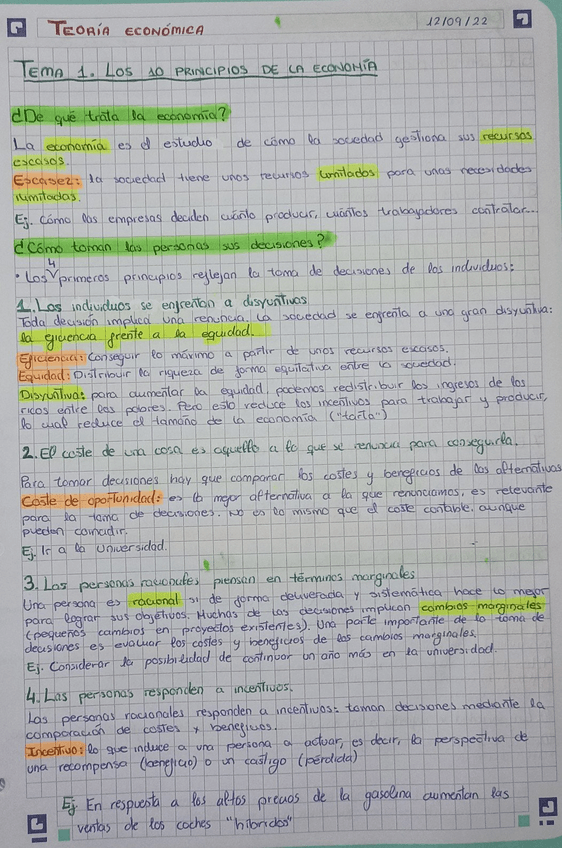 TEORÍA ECONÓMICA
12/09/22
TEMA 1. LOS 10 PRINCIPIOS DE LA ECONOMÍA
¿De qué trata la economía?
La economía es el estudio de cómo la sociedad gestiona sus recursos
escasos.
Escasez: la sociedad tiene unos recursos limitados para unas necesidades
ilimitadas.
Ej. Cómo las empresas deciden cuánto producir, cuántos trabajadores contratar...
¿Cómo toman las personas sus decisiones?
• Los 4 primeros principios reflejan la toma de decisiones de los individuos:
1. Los individuos se enfrentan a disyuntivas
Toda decisión implica una renuncia. La sociedad se enfrenta a una gran disyuntiva:
la eficiencia frente a la equidad.
Eficiencia: Conseguir lo máximo a partir de unos recursos escasos.
Equidad: Distribuir la riqueza de forma equitativa entre la sociedad.
Disyuntiva: para aumentar la equidad, podemos redistribuir los ingresos de los
ricos entre los pobres. Pero esto reduce los incentivos para trabajar y producir,
lo cual reduce el tamaño de la economía ("tarta")
2. El coste de una cosa es aquello a lo que se renuncia para conseguirla.
Para tomar decisiones hay que comparar los costes y beneficios de las alternativas
Coste de oportunidad: es la mejor alternativa a la que renunciamos, es relevante
para la toma de decisiones. No es lo mismo que el coste contable, aunque
pueden coincidir.
Ej. Ir a la Universidad.
3. Las personas racionales piensan en términos marginales
Una persona es racional si de forma deliverada y sistemática hace lo mejor
para lograr sus objetivos. Muchas de las decisiones implican cambios marginales
(pequeños cambios en proyectos existentes). Una parte importante de la toma de
decisiones es evaluar los costes y beneficios de los cambios marginales.
Ej. Considerar la posibilidad de continuar un año más en la universidad.
4. Las personas responden a incentivos.
Las personas racionales responden a incentivos: toman decisiones mediante la
comparación de costes y beneficios.
Incentivo: lo que induce a una persona a actuar, es decir, la perspectiva de
una recompensa (beneficio) o un castigo (pérdida)
Ej En respuesta a los altos precios de la gasolina aumentan las
ventas de los coches "híbridos"